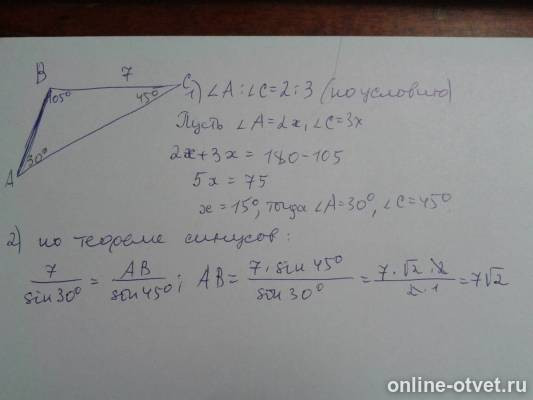 B
7
C
105°
45°
30°
A
1) ∠A : ∠C = 2 : 3 (по условию)
Пусть ∠A = 2x, ∠C = 3x
2x + 3x = 180 - 105
5x = 75
x = 15°, тогда ∠A = 30°, ∠C = 45°
2) по теореме синусов :
7/sin 30° = AB/sin 45° ; AB = 7 · sin 45°/sin 30° = 7 · √2 · 2/2 · 1 = 7√2
online-otvet.ru